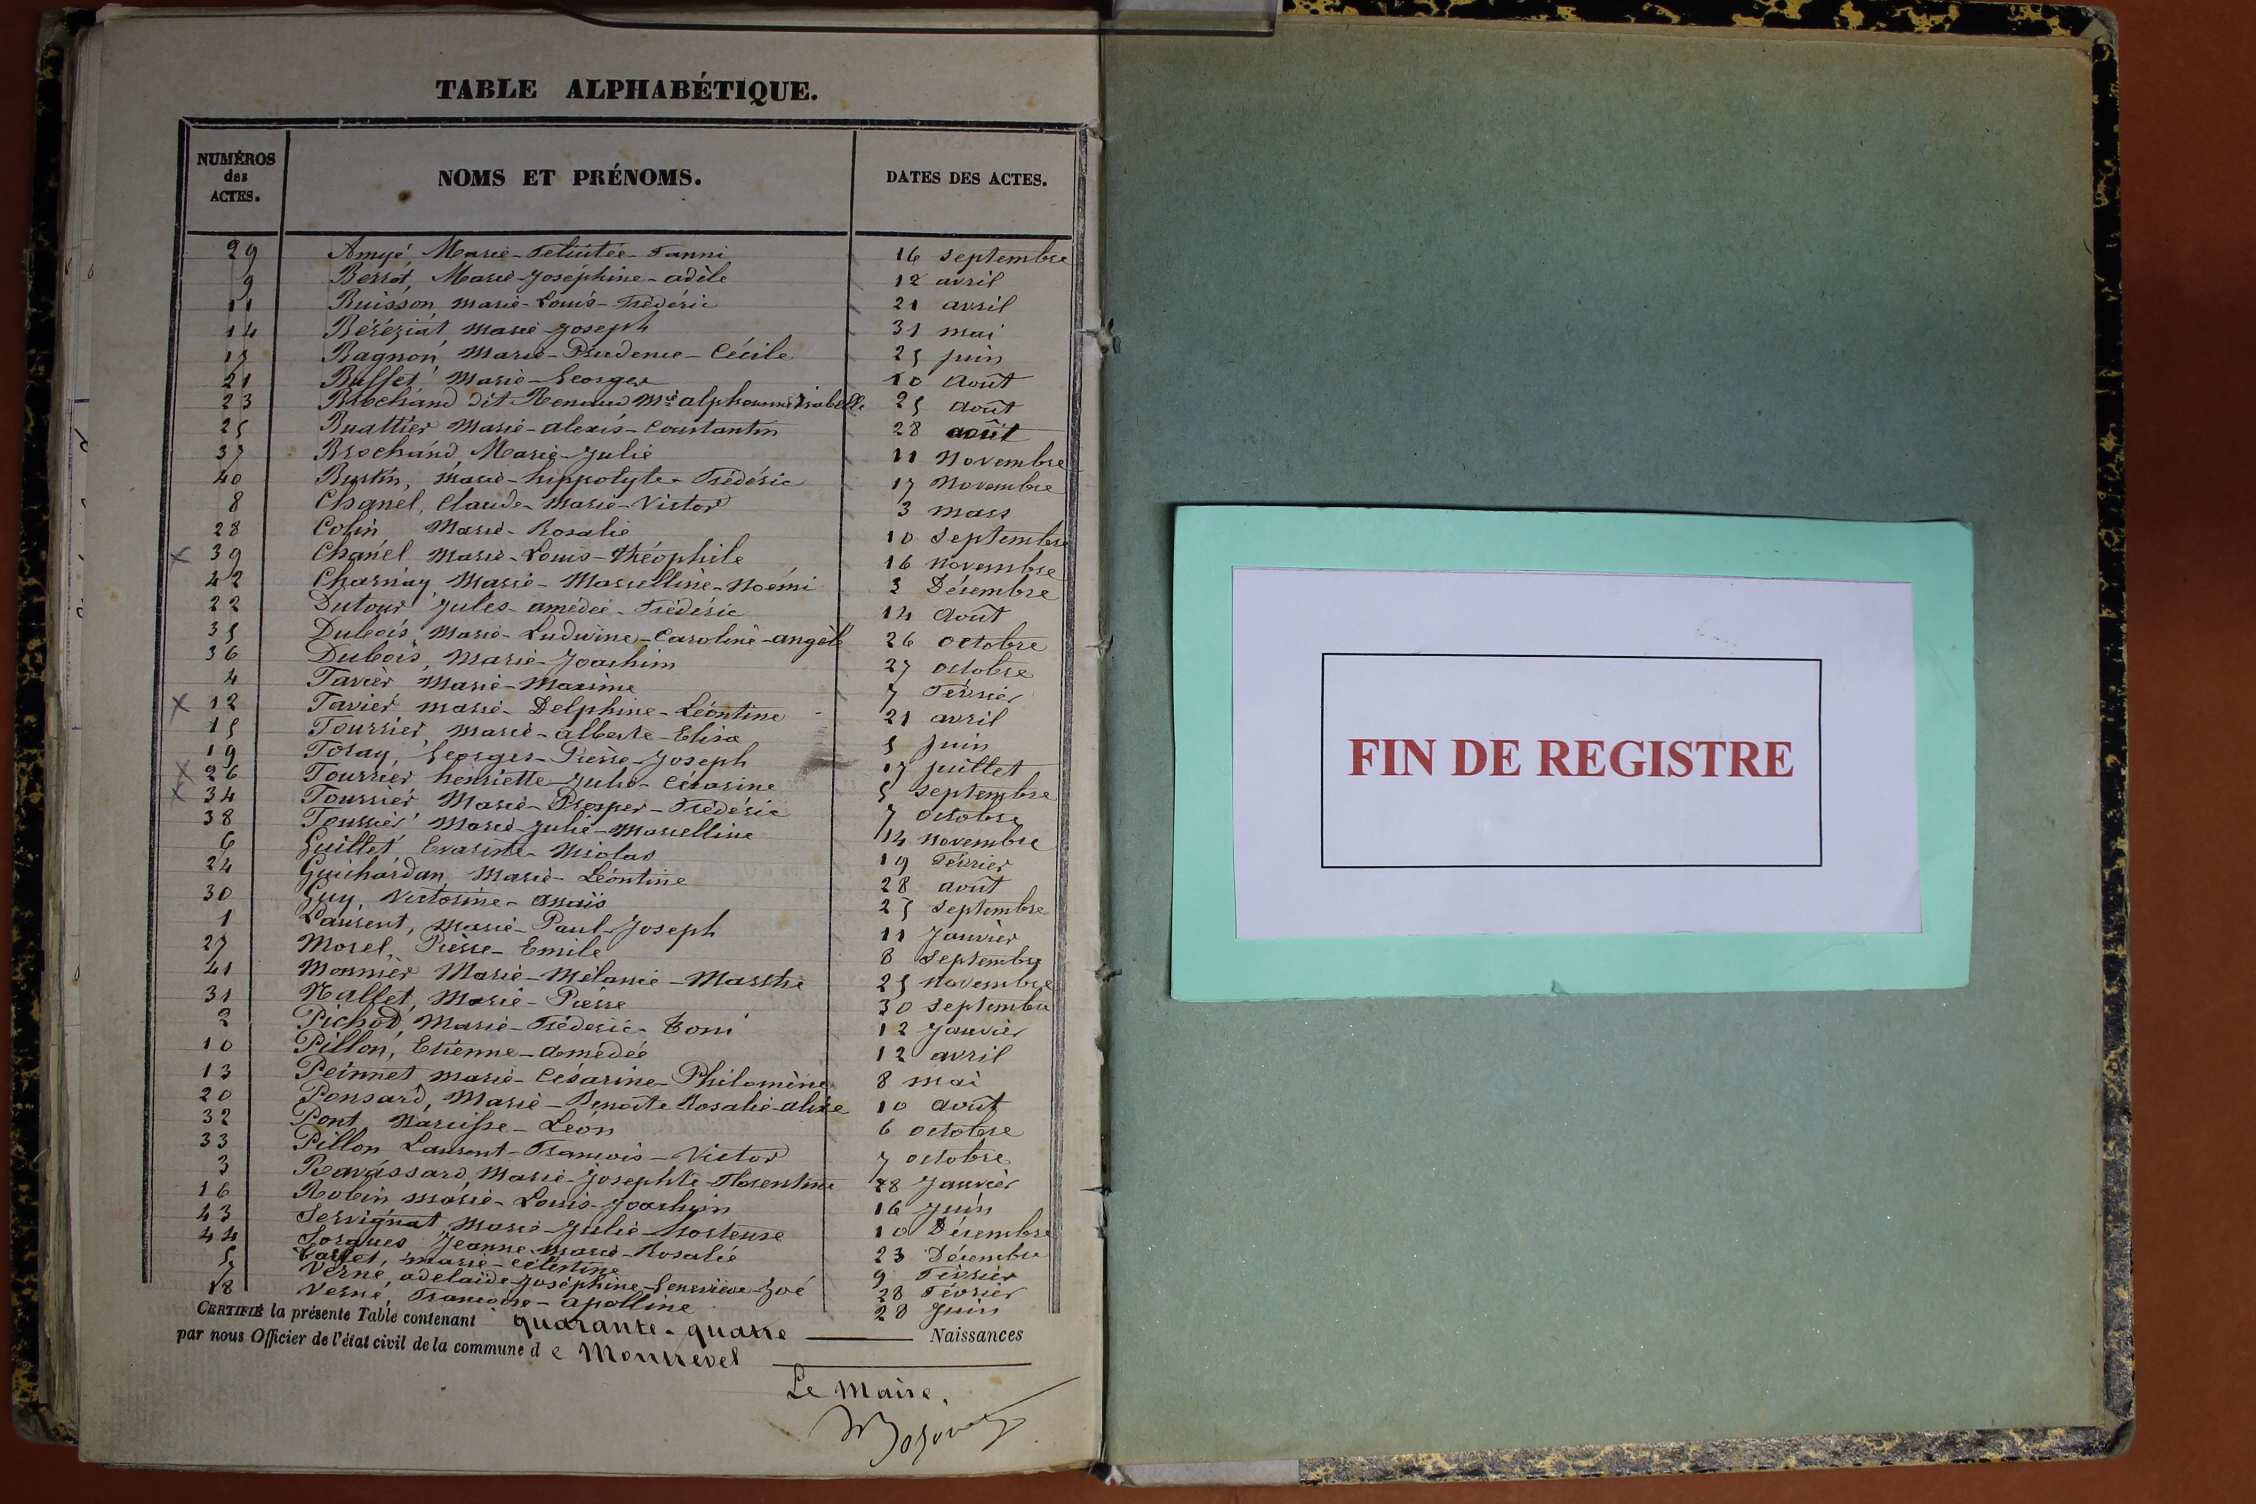 TABLE ALPHABÉTIQUE.
NUMÉROS des ACTES. NOMS ET PRÉNOMS. DATES DES ACTES.
29 Amyé, Marie-Félicitée-Fanni 16 septembre
9 Berrot, Marie-Joséphine-adèle 12 avril
11 Buisson, marie-Louis-Frédéric 21 avril
14 Béréziat marie-Joseph 31 mai
17 Bagnon, Marie-Prudence-Cécile 25 juin
21 Buffet, Marie-Georges 10 août
23 Brochand dit Renaud Mie alphonsine Isabelle 25 août
25 Buattier Marie-alexis-Constantin 28 août
37 Brochand, Marie-Julie 11 Novembre
40 Burtin, marie-hippolyte-Frédéric 17 Novembre
8 Chanel, Claude-Marie-Victor 3 mars
28 Colin Marie-Rosalie 10 septembre
39 Chanel Marie-Louis-théophile 16 novembre
42 Charnay Marie-Marcelline-Noémi 3 Décembre
22 Dutour Jules-amédée-Frédéric 14 août
35 Dubois, Marie-Ludwine-Caroline-angèle 26 octobre
36 Dubois, Marie-Joachim 27 octobre
4 Favier Marie-Maxime 7 Février
12 Favier marie-Delphine-Léontine 21 avril
15 Fourrier, marie-alberte-Elisa 5 juin
19 Foray, Georges-Pierre-Joseph 17 juillet
26 Fourrier henriette-Julie-Césarine 5 septembre
34 Fourrier Marie-Prosper-Frédéric 7 octobre
38 Fourrier Marie-Julie-Marcelline 14 novembre
6 Guillet Evariste-Nicolas 19 Février
24 Guichardan Marie-Léontine 28 août
30 Guy, Victorine-Anaïs 25 septembre
1 Laurent, Marie-Paul-Joseph 11 Janvier
27 Morel, Pierre-Emile 8 septembre
41 Monnier Marie-Mélanie-Marthe 25 novembre
31 Nallet, Marie-Pierre 30 septembre
2 Pichod, Marie-Fréderic-Toni 12 Janvier
10 Pillon, Etienne-amédée 12 avril
13 Peinnet marie-Césarine-Philomène 8 mai
20 Ponsard, Marie-Benoîte Rosalie-alixe 10 août
32 Pont Narcisse-Léon 6 octobre
33 Pillon Laurent-François-Victor 7 octobre
3 Ravassard, Marie-Josephte-Florentine 28 Janvier
16 Robin marie-Louis-Joachim 16 juin
43 Servignat, Marie-Julie-hortense 10 Décembre
44 Sorgues Jeanne-Marie-Rosalie 23 Décembre
5 marie-Célestine 9 Février
7 Verne, adelaïde-Joséphine-Geneviève-Zoé 28 Février
18 Verne, Françoise-apolline 28 Juin
CERTIFIÉ la présente Table contenant quarante-quatre Naissances
par nous Officier de l'état civil de la commune de Montrevel
Le Maire,
FIN DE REGISTRE